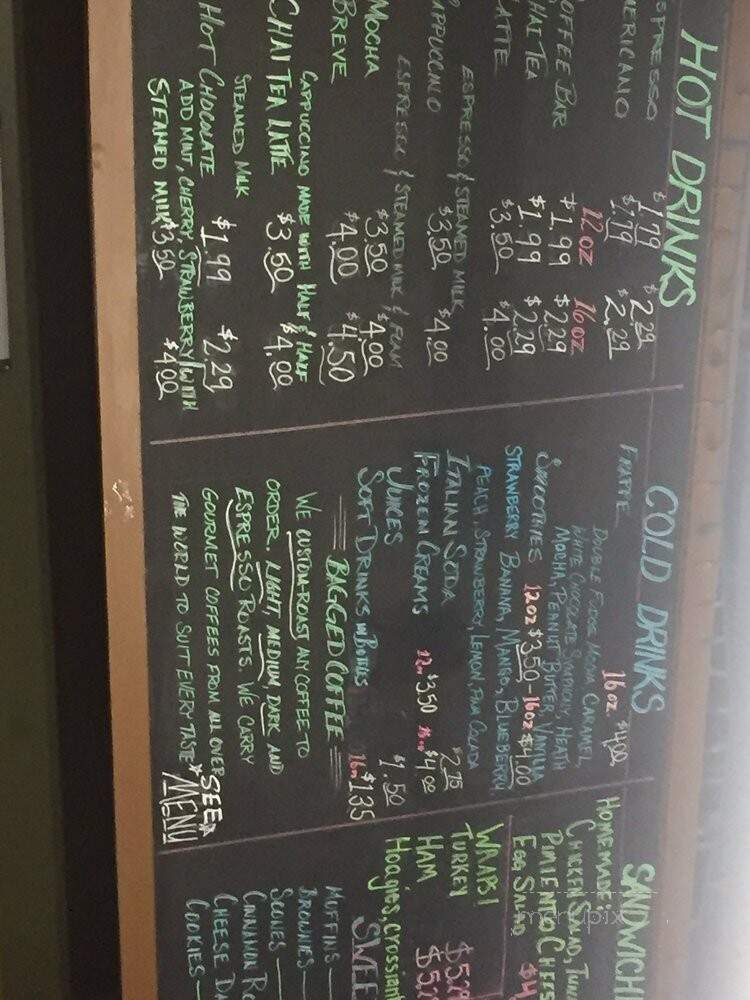 HOT DRINKS
$1.79 $2.29
$1.79 $2.29
12 oz 16 oz
COFFEE BAR $1.99 $2.29
CHAI TEA $1.99 $2.29
LATTE $3.50 $4.00
ESPRESSO & STEAMED MILK
CAPPUCCINO $3.50 $4.00
ESPRESSO & STEAMED MILK & FOAM
MOCHA $3.50 $4.00
BREVE $4.00 $4.50
CAPPUCCINO MADE WITH HALF & HALF
CHAI TEA LATTE $3.50 $4.00
STEAMED MILK
HOT CHOCOLATE $1.99 $2.29
ADD MINT, CHERRY, STRAWBERRY WITH
STEAMED MILK $3.50 $4.00
COLD DRINKS
FRAPPE 16 oz. $4.00
DOUBLE FUDGE MOCHA, CARAMEL,
WHITE CHOCOLATE SYMPHONY, HEATH
MOCHA, PEANUT BUTTER, VANILLA
SMOOTHIES 12 oz $3.50 - 16 oz $4.00
STRAWBERRY BANANA, MANGO, BLUEBERRY
PEACH, STRAWBERRY, LEMON, PINA COLADA
ITALIAN SODA $2.75
FROZEN CREAMS 12oz $3.50 16oz $4.00
JUICES $1.50
SOFT DRINKS IN BOTTLES 16oz $1.35
BAGGED COFFEE
WE CUSTOM-ROAST ANY COFFEE TO
ORDER. LIGHT, MEDIUM, DARK AND
ESPRESSO ROASTS. WE CARRY
GOURMET COFFEES FROM ALL OVER
THE WORLD TO SUIT EVERY TASTE
*SEE*
MENU
SANDWICH
HOMEMADE:
CHICKEN SALAD, TUN
PIMIENTO CHEES
EGG SALAD $4
WAABI
TURKEY $5.29
HAM $5.2
Hoagies, crossiant
SWEE
MUFFINS
BROWNIES
SCONES
CINNAMON RO
CHEESE DA
COOKIES
menupix